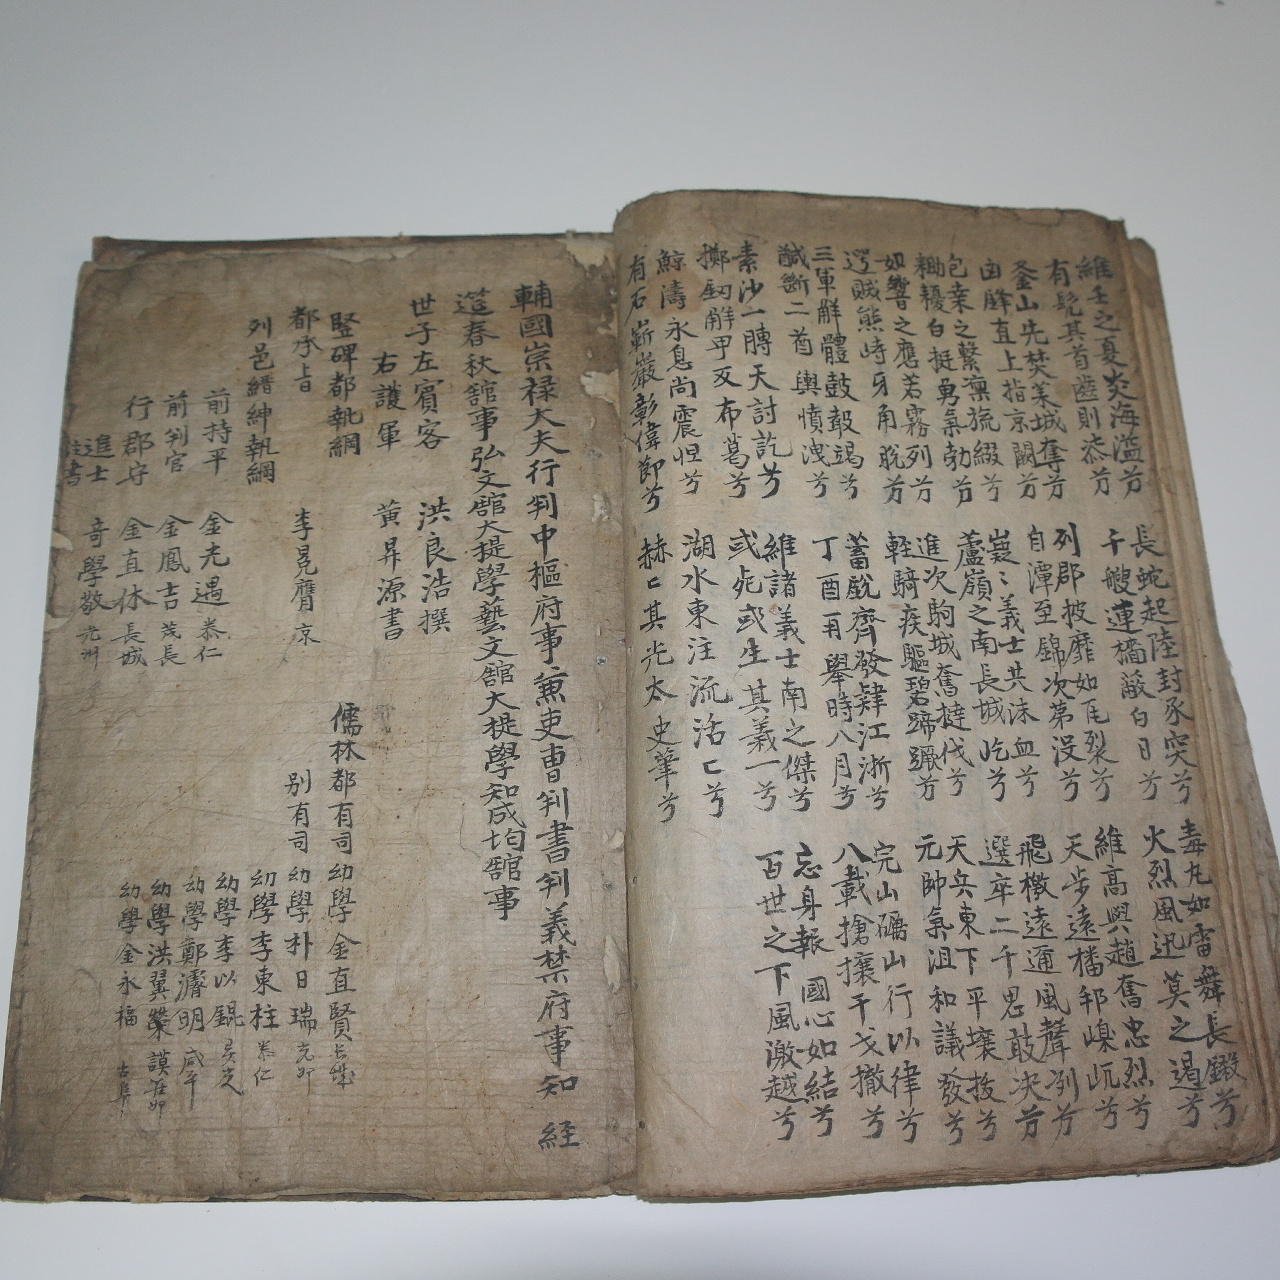 維壬之夏炎海溢兮 長蛇起陸封豕突兮 毒丸如雷舞長鎩兮
有髡其首齒則漆兮 千艘連檣蔽白日兮 火烈風迅莫之遏兮
釜山先焚萊城奪兮 列郡披靡如瓦裂兮 維高與趙奮忠烈兮
直上指京闕兮 自潭至錦次第沒兮 天步遠播邦嵲屼兮
包桑之繫凜旒綴兮 義士共沫血兮 飛檄遠邇風聲冽兮
耰白挺勇氣勃兮 蘆嶺之南長城屹兮 選卒二千思敢决兮
如響之應若霧列兮 進次駒城奮撻伐兮 天兵東下平壤拔兮
賊熊峙牙角脫兮 輕騎疾驅碧蹄躓兮 元帥氣沮和議發兮
三軍解體鼓鼙竭兮 蓄銳齊發肆江浙兮 完山礪山行以律兮
馘斷二酋輿憤洩兮 丁酉再擧時八月兮 八載搶攘干戈撤兮
素沙一膊天討訖兮 維諸義士南之傑兮 忘身報國心如結兮
擲釰解甲反布葛兮 或死或生其義一兮 百世之下風激越兮
鯨濤永息尚震怛兮 湖水東注流活〻兮
有石嶄巖彰偉節兮 赫〻其光太史筆兮
輔國崇祿大夫行判中樞府事兼吏曹判書判義禁府事知 經
筵春秋舘事弘文舘大提學藝文舘大提學知成均舘事
世子左賓客 洪良浩撰
右護軍 黃昇源書
竪碑都執綱 儒林都有司 幼學 金直賢 長城
都承旨 李冕膺 京 别有司 幼學 朴日瑞
列邑縉紳執綱 幼學 李東柱 泰仁
前持平 金光遇 泰仁 幼學 李以錕
前判官 金鳳吉 茂長 幼學 鄭濬明 咸平
行郡守 金直休 長城 幼學 洪翼
進士 奇學敬 光州 幼學 金永福 古阜